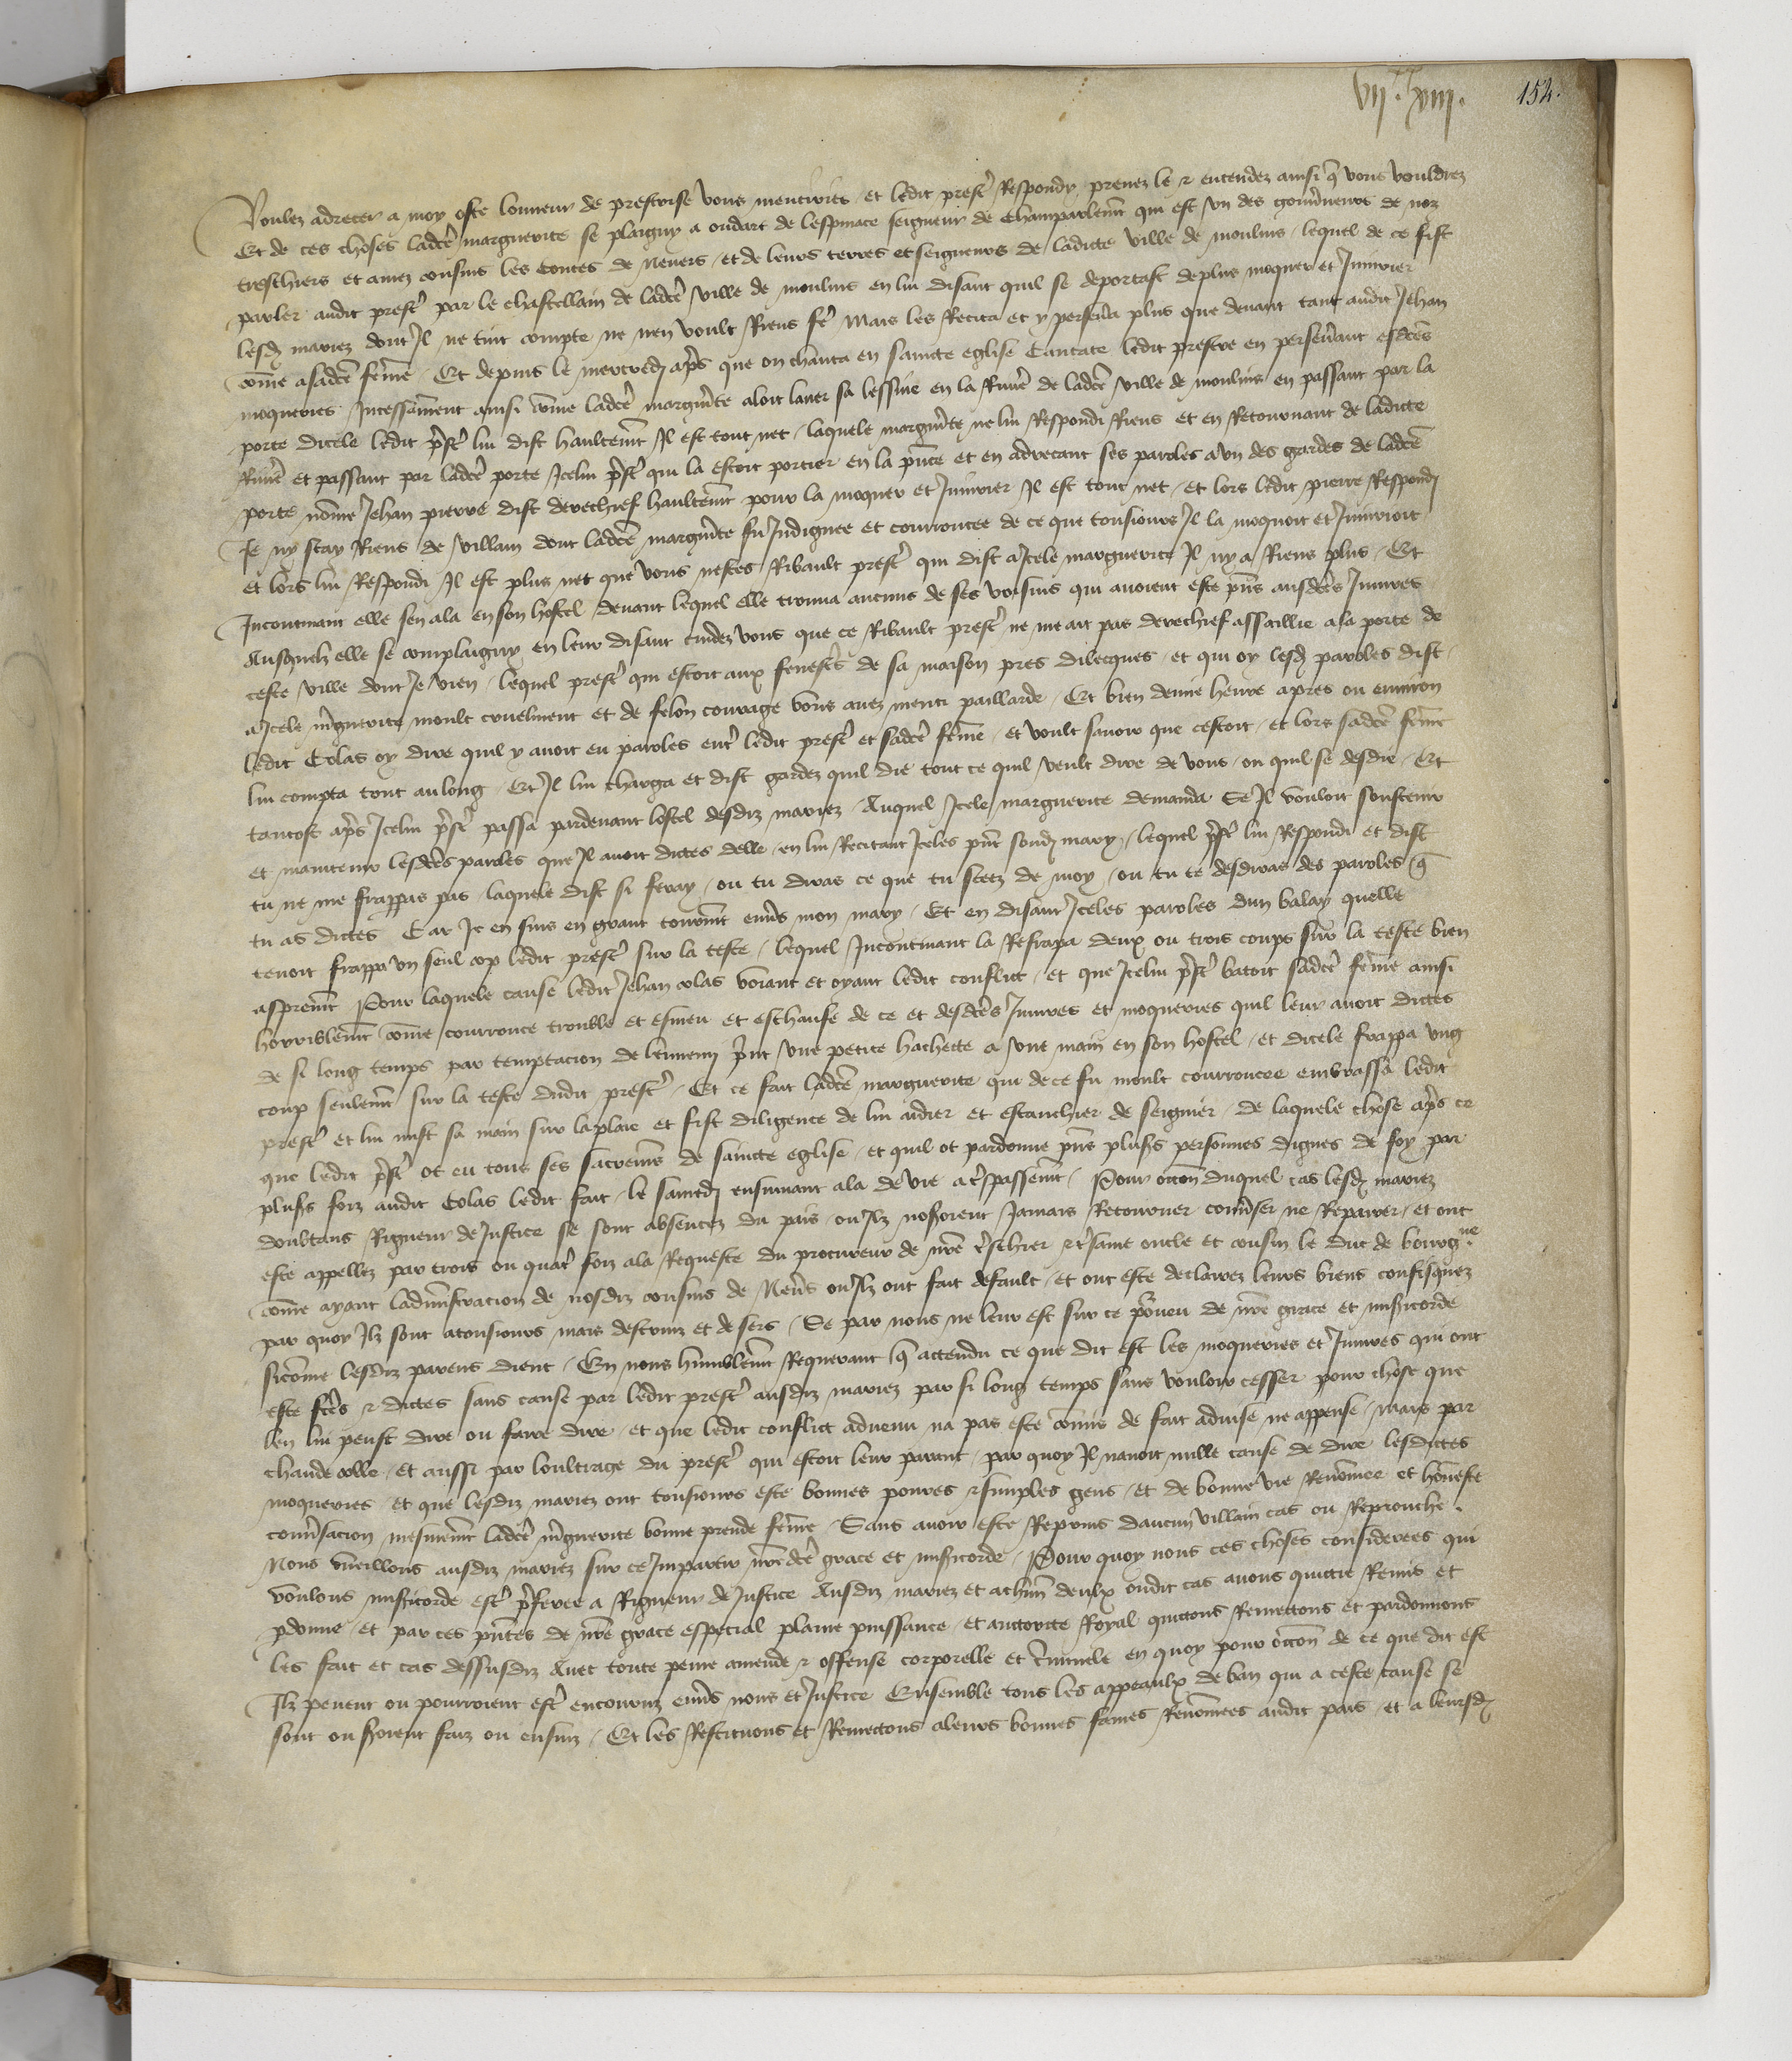 vii.xx xiiii.
154.
Voulez adrecer a moy oste lonneur de prestrise vous mentiriez . et ledit prest' Respondy prenez le et entendez ainsi q̄ vous vouldrez
Et de ces choses ladcē marguerite se plaigny a oudart de lespinace seigneur de Champarlem̄t qui est un des gouv'neurs de noz
treschiers et amez cousins les Contes de Nevers . et de leurs terres et seigneurs de ladicte ville de moulins . lequel de ce fist
parler audit prest' par le chastellain de ladcē ville de moulins en lui disant quil se deportast de plus moquer et Iniurier
lesd' mariez dont Il ne tint compte ne nen voult Riens fē Mais les Recita et y persevera plus que devant tant audit Jehan
cōme a sadcē fēme . Et depuis le mercredj ap's que on chanta en saincte eglise Cantate ledit prestre en persev'ant esdcēs
moqueries Incessāment ainsi cōme ladcē marg'ite aloit laver sa lessive en la Riviē de ladcē ville de moulins en passant par la
porte dicele ledit p'st' lui dist haultem̄t Il est tout net . laquele marg'ite ne lui Respondi Riens et en Retournant de ladicte
Riviē et passant par ladcē porte Icelui p'st' qui la estoit portier en la p̄nce et en adrecant ses paroles a un des gardes de ladcē
porte nōme Jehan pierre dist derechief haultem̄t pour la moquer et Iniurier Il est tout net . et lors ledit pierre Respondj
Je ny scay Riens de villain dont ladcē marg'ite fu Indignee et courroucee de ce que tousiours Il la moquoit et Iniurioit
et lors lui Respondi Il est plus net que vous nestes Ribault prest' qui dist a Icele marguerite Il ny a Riens plus . Et
Incontinant elle sen ala en son hostel devant lequel elle trouva aucuns de ses voisins qui avoient este p̄ns ausdcēs Iniures
Ausquelz elle se complaigny en leur disant cuidez vous que ce Ribault prest' ne me ait pas derechief assaillie a la porte de
ceste ville dont Je vien . lequel prest' qui estoit aux fenest's de sa maison pres dilecques . et qui oy lesd' paroles dist
a Icele m'guerite moult cruelment et de felon courage vous avez menti paillarde . Et bien demie heure apres ou environ
ledit Colas oy dire quil y avoit eu paroles ent' ledit prest' et sadcē fēme . et voult savoir que cestoit . et lors sadcē fēme
lui compta tout au long . Et Il lui charga et dist gardez quil die tout ce quil veult dire de vous . ou quil se desdie . Et
tantost ap's Icelui p'st' passa pardevant lostel desdiz mariez . Auquel Icele marguerite demanda Se Il vouloit soustenir
et maintenir lesdcēs paroles que Il avoit dictes delle . en lui Recitant Iceles p̄nt sond' mary . lequel p'st' lui Respondi et dist
tu ne me frappas pas . laquele dist si feray . ou tu diras ce que tu scetz de moy . ou tu te desdiras des paroles q̄
tu as dictes Car Je en suis en grant tourm̄t env's mon mary . Et en disant Iceles paroles dun balay quelle
tenoit frappa un seul cop ledit prest' sur la teste . lequel Incontinant la Refrapa deux ou trois coups sur la teste bien
asprem̄t Pour laquele cause ledit Jehan colas voiant et oyant ledit conflict . et que Icelui p'st' batoit sadcē fēme ainsi
horriblem̄t cōme courrouce trouble et esmeu et eschaufe de ce et desdcēs Iniures et moqueries quil leur avoit dictes
de si long temps par temptacion de lennemj p'nt une petite hachette a une main en son hostel . et dicele frappa ung
coup seulem̄t sur la teste dudit prest' . Et ce fait ladcē marguerite qui de ce fu moult courroucee embrassa ledit
prest' et lui mist sa main sur la plaie et fist diligence de lui aidier et estanchier de seignier . de laquele chose ap's ce
que ledit p'st' ot eu tous ses sacrem̄s de saincte eglise . et quil ot pardonne p̄ns plus's personnes dignes de foy par
plus's foiz audit Colas ledit fait . le samedj ensuivant ala de vie a t'passem̄t . Pour occoīn duquel cas lesd' mariez
doubtans Rigueur de Justice se sont absentez du pais . ou Ilz noseroient Jamais Retourner conv'ser ne Reparer . et ont
este appellez par trois ou quat' foiz a la Requeste du procureur de n're t'schier et t'same oncle et cousin le duc de bourg'ne
cōme ayant ladm̄istracion de nosdiz cousins de Nev's ou Ilz ont fait default . et ont este declairez leurs biens confisquez
par quoy Ilz sont a tousiours mais destruiz et desers . Se par nous ne leur est sur ce p'veu de n're grace et mis'icorde
sicōme lesdiz parens dient . En nous humblem̄t Requerant q̄ actendu ce que dit est les moqueries et Iniures qui ont
este fcēs et dictes sans cause par ledit prest' ausdiz mariez par si long temps sans vouloir cesser pour chose que
len lui peust dire ou faire dire . et que ledit conflict advenu na pas este cōmis de fait advise ne appense . mais par
chaude cole . et aussi par loultrage du prest' qui estoit leur parent . par quoy Il navoit nulle cause de dire lesdictes
moqueries . et que lesdiz mariez ont tousiours este bonnes povres et simples gens . et de bonne vie Renōmee et hōneste
conv'sacion mesmem̄t ladcē m'guerite bonne preude fēme . Sans avoir este Reprins daucun villain cas ou Reprouche .
Nous vueillons ausdiz mariez sur ce Impartir n're dcē grace et mis'icorde . Pour quoy nous ces choses considerees qui
voulons mis'icorde est' p'feree a Rigueur de Justice Ausdiz mariez et a chūn deulx oudit cas avons quictie Remis et
p'donne . et par ces p̄ntes de n're grace especial plaine puissance . et auctorite Royal quictons Remectons et pardonnons
les fait et cas dessusdiz Avec toute peine amende et offense corporelle et c'minele en quoy pour occoīn de ce que dit est
Ilz pevent ou pourroient est' encouruz env's nous et Justice Ensemble tous les appeaulx de ban qui a ceste cause se
sont ou s'oient faiz ou ensuiz . Et les Restituons et Remectons a leurs bonnes fames Renōmees audit pais . et a leursd'